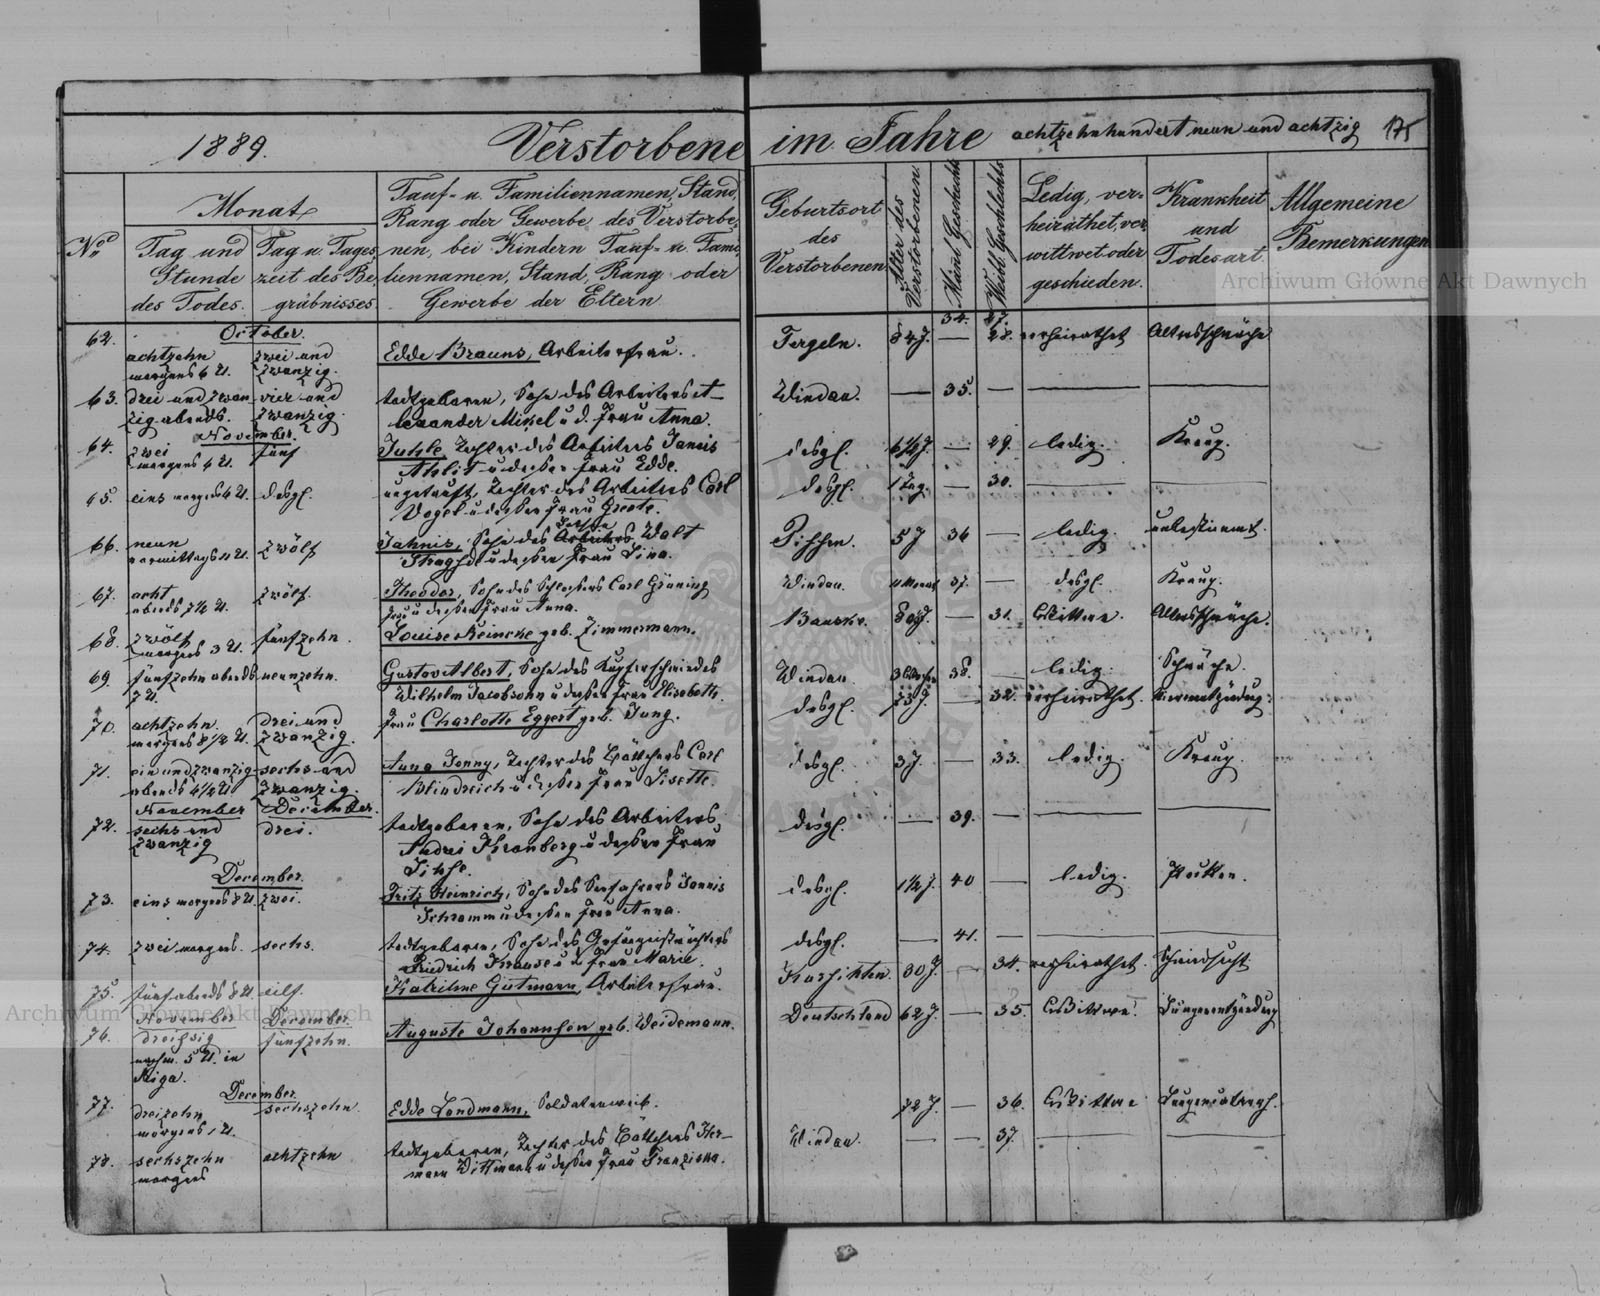 1889. Verstorbene im Jahre achtzehnhundert neun und achtzig 175
No
Monat
Tag und Stunde des Todes.
Tag u. Tages, zeit des Be, gräbnisses.
Tauf- u. Familiennamen, Stand,
Rang oder Gewerbe des Verstorbe,
nen, bei Kindern Tauf- u. Fami,
liennamen, Stand, Rang oder
Gewerbe der Eltern.
Geburtsort
des
Verstorbenen
Alter des Verstorbenen
Männl. Geschlechts
Weibl. Geschlechts
Ledig, ver-
heirathet, ver,
wittwet oder
geschieden.
Krankheit
und
Todesart.
Allgemeine
Bemerkungen
34. 27.
October.
62. achtzehn morgens 6 U. zwei und zwanzig. Edde Brauns, Arbeiterfrau. Tergeln. 84 J. — 28. verheirathet Altersschwäche
63. drei und zwanzig abends. vier und zwanzig. todtgeboren, Sohn des Arbeiters Alexander Mikel u. d. Frau Anna. Windau. — 35. —
November.
64. zwei morgens 4 U. fünf Tochter des Arbeiters Jannis u dessen Frau Edde. desgl. — 29. ledig.
65. eins morgens 4 U. desgl. ungetauft, Tochter des Arbeiters Carl Vogel u dessen Frau Greete. desgl. 1 Tag. — 30.
66. neun vormittags 11 U. zwölf Jahnis, Sohn des u dessen Frau Lina. 5 J 36 — ledig. unbestimmt.
67. acht abends 7½ U. zwölf. Theodor, Sohn des Schlossers Carl Grüning u dessen Frau Anna. Windau. 11 Monat 37. — desgl.
68. zwölf morgens 3 U. fünfzehn. Frau Louise Reincke geb. Zimmermann. Bauske. — 31. Wittwe Altersschwäche.
69. fünfzehn abends 7 U. neunzehn. Gustav Albert, Sohn des Kupferschmiedes Wilhelm Jacobsohn u dessen Frau Elisabeth. Windau. 3 Wochen 38. ledig. Schwäche.
70. achtzehn morgens 8½ U. drei und zwanzig. Frau Charlotte Eggert geb. Jung. desgl. 73 J. — 32. verheirathet.
71. ein und zwanzig abends 4½ U. sechs und zwanzig. Anna Jenny, Tochter des Böttchers Carl Blindreich u dessen Frau Lisette. desgl. 3 J. — 33. ledig.
November December.
72. sechs und zwanzig drei. todtgeboren, Sohn des Arbeiters Andrei Kronberg u dessen Frau desgl. — 39. —
December.
73. eins morgens 8 U. zwei. Fritz Heinrich, Sohn des Seefahrers Jannis Schramm u dessen Frau Anna. desgl. 1½ J. 40 — ledig. Pocken.
74. zwei morgens. sechs. todtgeboren, Sohn des Gefängnißwächters Friedrich Krause u d. Frau Marie. desgl. — 41. —
75. fünf abends 8 U. eilf. Katrihne Gutmann, Arbeiterfrau. 30 J. — 34. verheirathet. Schwindsucht
November December.
76. dreißig nachm. 5 U. in Riga. fünfzehn. Auguste Johannsen geb. Weidemann. Deutschland 62 J. — 35. Wittwe. Lungenentzündung
December.
77. dreizehn morgens 1 U. sechszehn. Edde Landmann, Soldatenweib. 72 J. — 36. Wittwe
78. sechszehn morgens achtzehn todtgeboren, Tochter des Böttchers Hermann Wittmann u dessen Frau Franziska. Windau. — — 37.
Archiwum Główne Akt Dawnych
Archiwum Główne Akt Dawnych